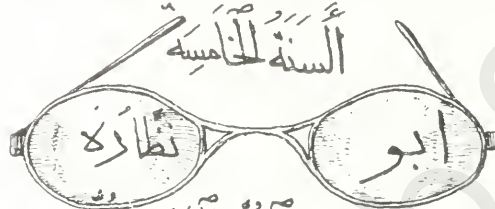 أَلسَنَةُ الخَامِسَه
ابو نَظَّارَة